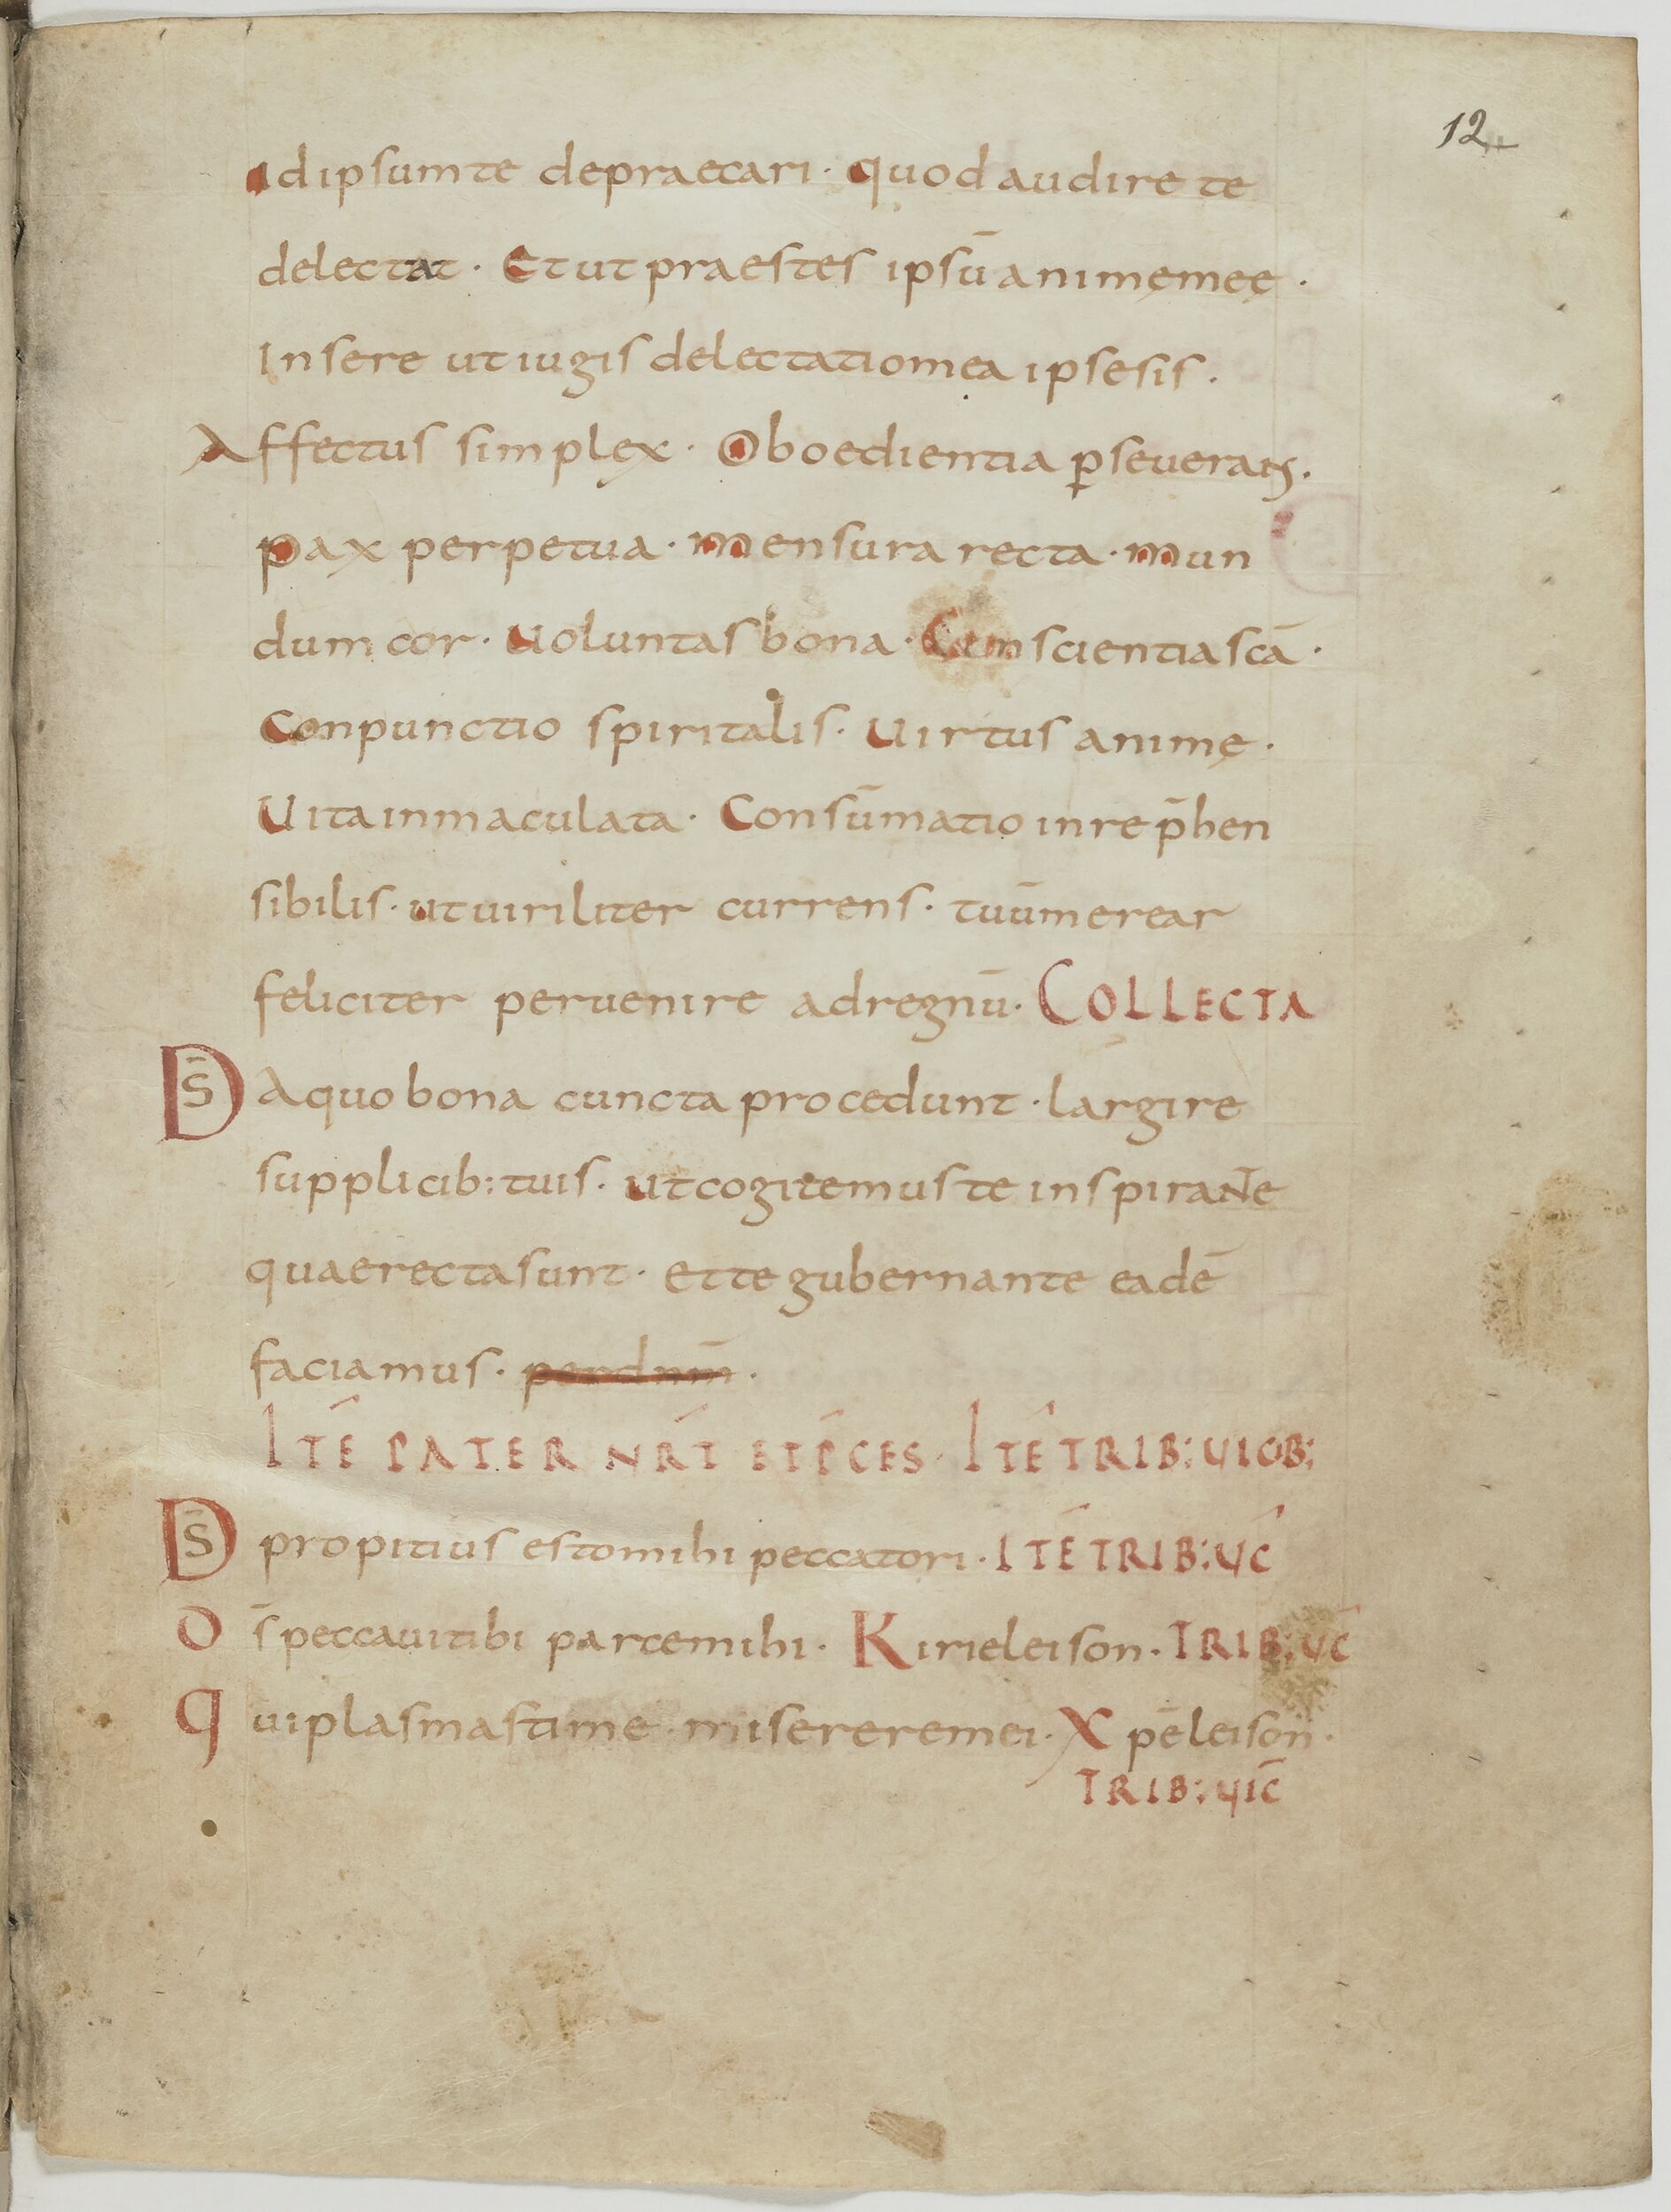 12
idipsum te depraecari · quod audire te
delectat · Et ut praestes ipsū animę meę ·
Insere ut iugis delectatio mea ipse sis ·
Affectus simplex · Oboedientia ꝑseverans ·
pax perpetua · mensura recta · mun
dum cor · Uoluntas bona · Conscientia scā ·
Conpunctio spiritalis · Uirtus animę ·
Uita inmaculata · Consūmatio inrep̄hen
sibilis · ut uiriliter currens · tuūm merear
feliciter peruenire ad regnū · COLLECTA
DS̄ A quo bona cuncta procedunt · largire
supplicib: tuis · ut cogitemus te inspirante
quae recta sunt · et te gubernante eadē
faciamus · perdnm̄ ·
ITĒ PATER NR̄T ET P̄CES · ITĒ TRIB: UIOB:
DS̄ propitius esto mihi peccatori · ITĒ TRIB: UC̄
Ds̄ peccaui tibi parce mihi · Kirieleison · TRIB: UC̄
Qui plasmasti me miserere mei · Xpēleison ·
TRIB: UIC̄